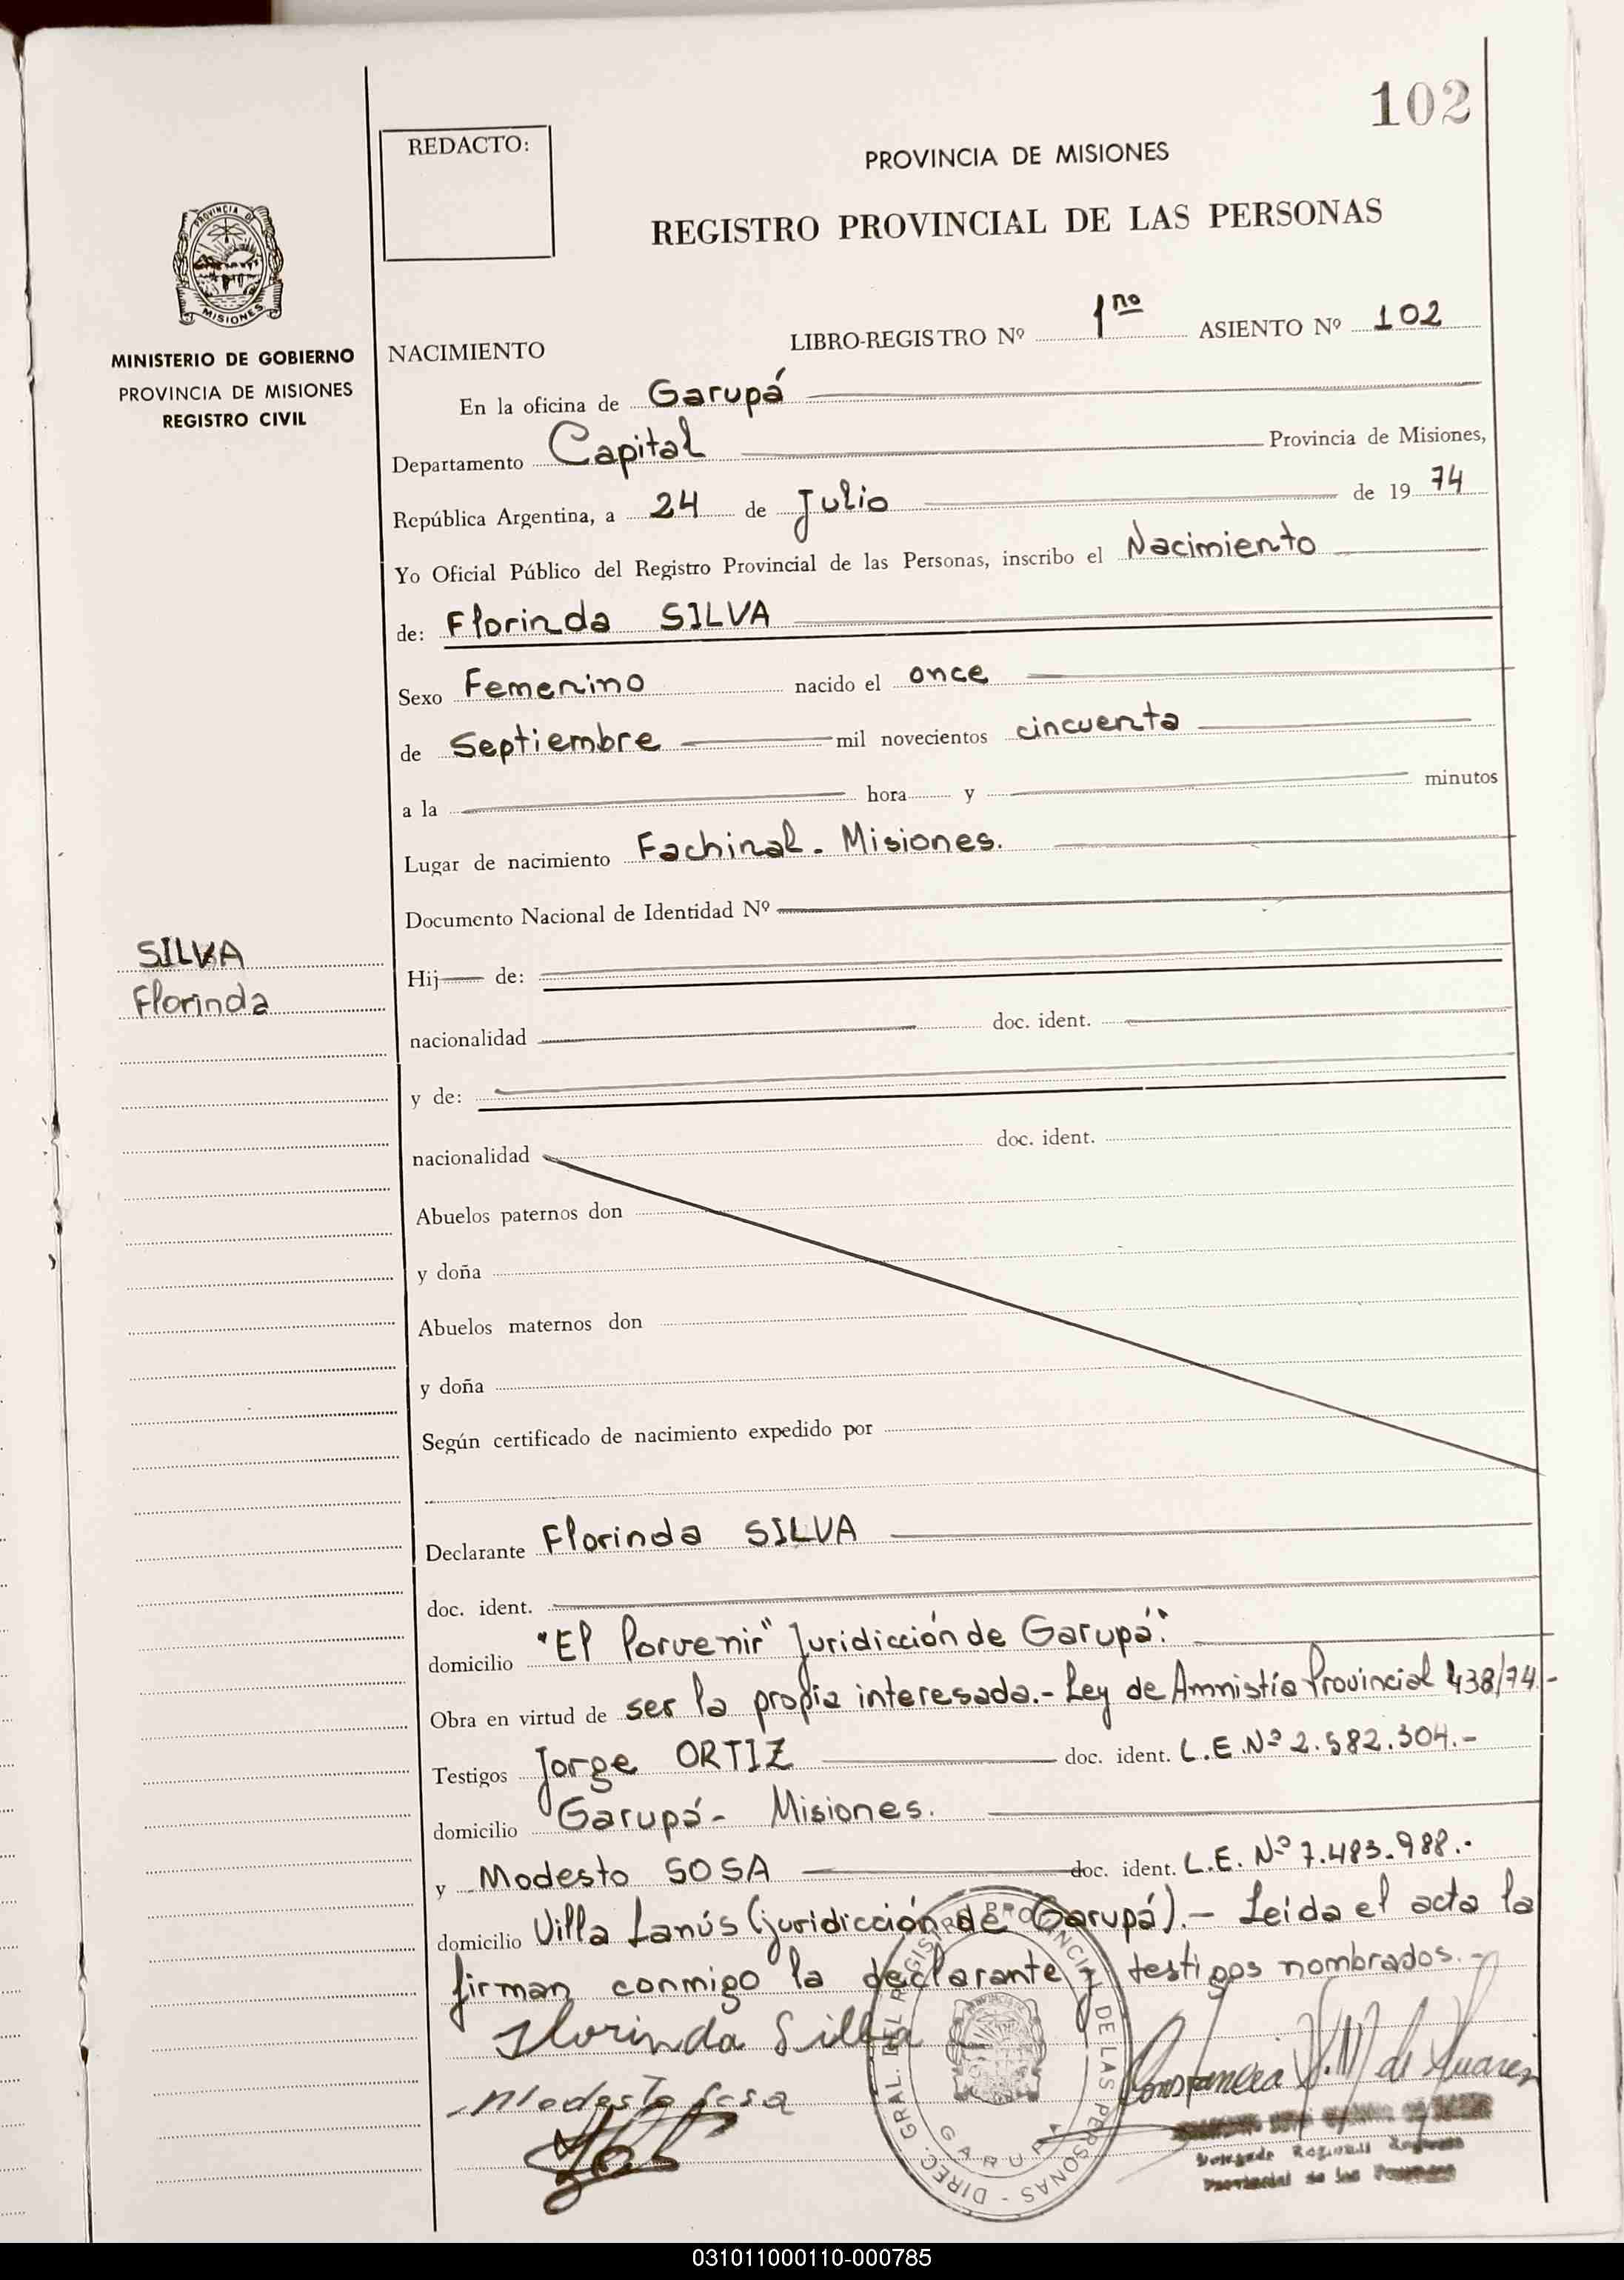 102
REDACTO:
PROVINCIA DE MISIONES
REGISTRO PROVINCIAL DE LAS PERSONAS
PROVINCIA DE
MISIONES
MINISTERIO DE GOBIERNO
PROVINCIA DE MISIONES
REGISTRO CIVIL
NACIMIENTO LIBRO-REGISTRO Nº 1no ASIENTO Nº 102
En la oficina de Garupá
Departamento Capital Provincia de Misiones,
República Argentina, a 24 de Julio de 1974
Yo Oficial Público del Registro Provincial de las Personas, inscribo el Nacimiento
de: Florinda SILVA
Sexo Femenino nacido el once
de Septiembre mil novecientos cincuenta
a la hora y minutos
Lugar de nacimiento Fachinal. Misiones.
Documento Nacional de Identidad Nº
SILVA
Florinda
Hij de:
nacionalidad doc. ident.
y de:
nacionalidad doc. ident.
Abuelos paternos don
y doña
Abuelos maternos don
y doña
Según certificado de nacimiento expedido por
Declarante Florinda SILVA
doc. ident.
domicilio "El Porvenir" Juridicción de Garupá".
Obra en virtud de ser la propia interesada.- Ley de Amnistía Provincial 438/74.-
Testigos Jorge ORTIZ doc. ident. L.E.Nº 2.582.304.-
domicilio Garupá- Misiones.
y Modesto SOSA doc. ident. L.E. Nº 7.483.988.-
domicilio Villa Lanús (juridicción de Garupá).- Leída el acta la
firman conmigo la declarante y testigos nombrados.-
Florinda Silva
Modesto Sosa
Constancia V.M de Suarez
DIREC. GRAL. DEL REGISTRO PROVINCIAL DE LAS PERSONAS -
GARUPA
Delegada Regional Registro
Provincial de las Personas
031011000110-000785